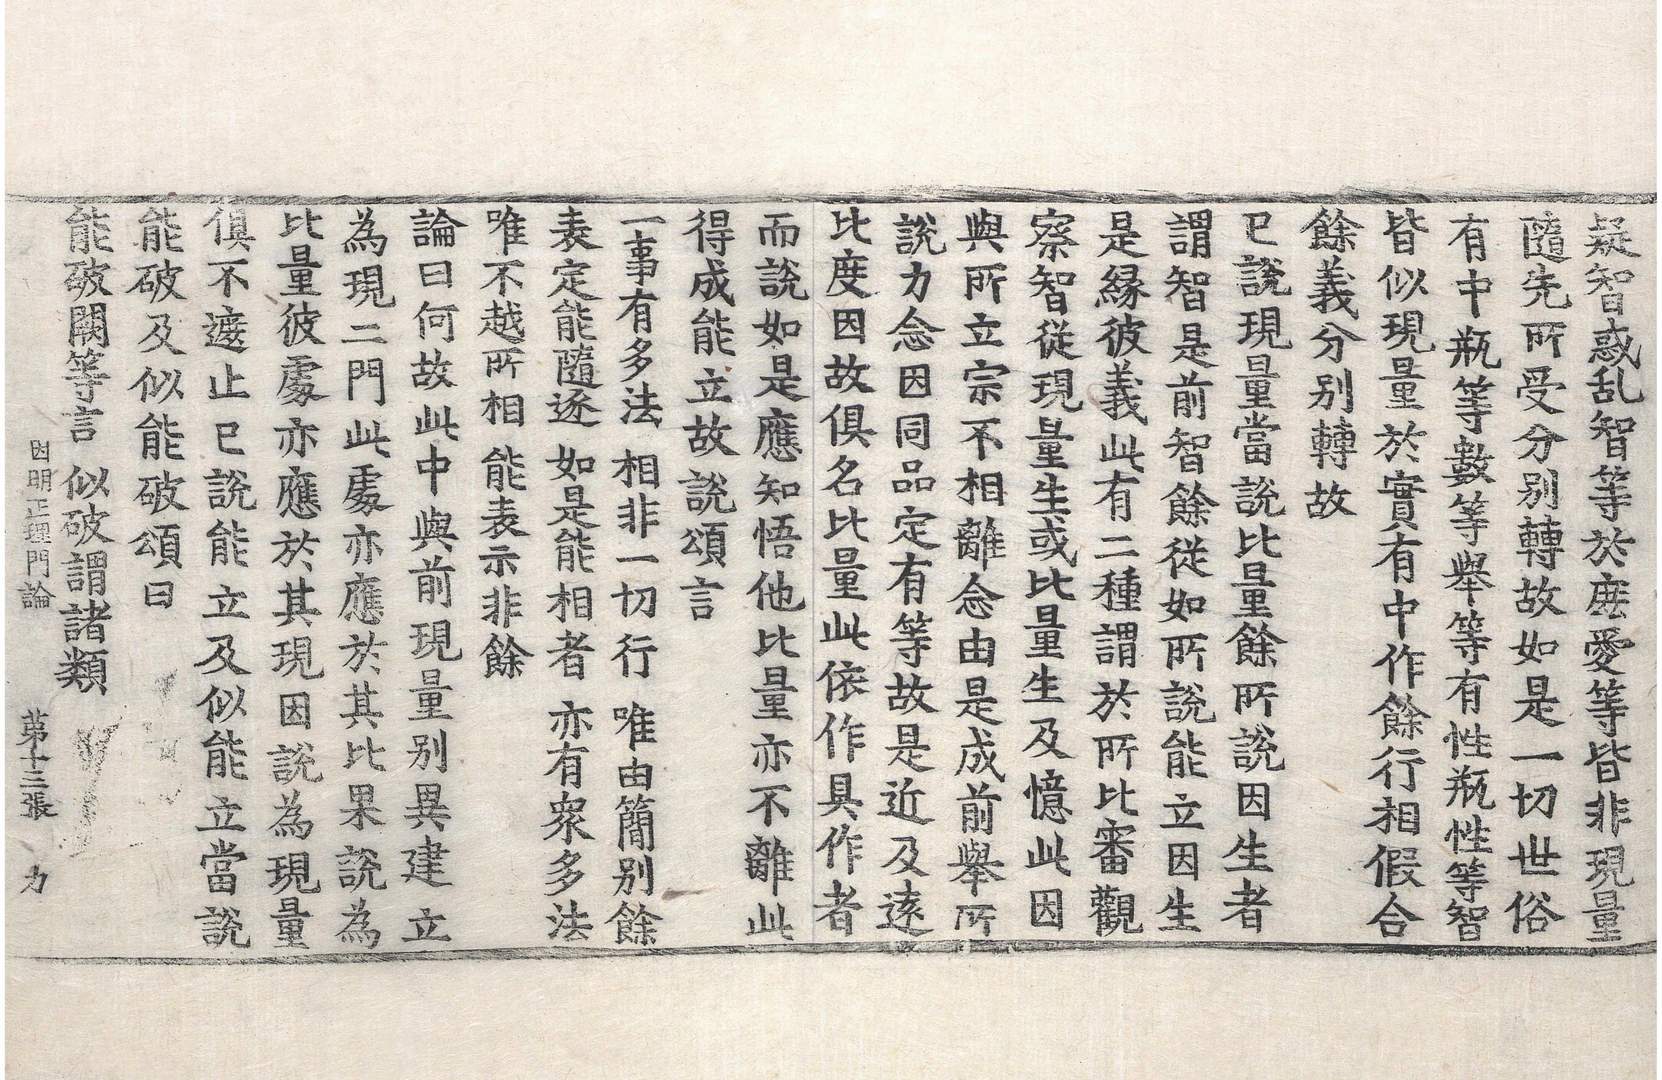 疑智惑乱智等於鹿愛等皆非現量
隨先所受分別轉故如是一切世俗
有中瓶等數等舉等有性瓶性等智
皆似現量於實有中作餘行相假合
餘義分別轉故
已說現量當說比量餘所說因生者
謂智是前智餘從如所說能立因生
是緣彼義此有二種謂於所比審觀
察智從現量生或比量生及憶此因
與所立宗不相離念由是成前舉所
說力念因同品定有等故是近及遠
比度因故俱名比量此依作具作者
而說如是應知悟他比量亦不離此
得成能立故說頌言
一事有多法 相非一切行 唯由簡別餘
表定能隨逐 如是能相者 亦有衆多法
唯不越所相 能表示非餘
論曰何故此中與前現量別異建立
為現二門此處亦應於其比果說為
比量彼處亦應於其現因說為現量
俱不遮止已說能立及似能立當說
能破及似能破頌曰
能破闕等言 似破謂諸類
因明正理門論 第十三張 力